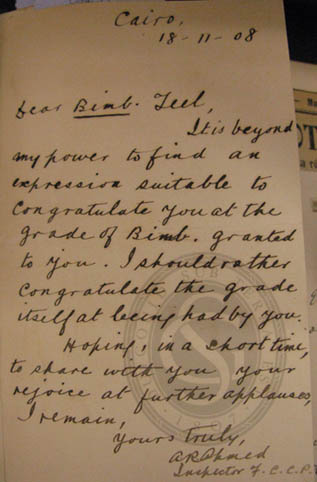 Cairo,
18-11-08
Dear Bimb. Teel,
It is beyond
my power to find an
expression suitable to
congratulate you at the
grade of Bimb. granted
to you. I should rather
congratulate the grade
itself at being had by you.
Hoping, in a short time,
to share with you your
rejoice at further applauses,
I remain,
Yours truly,
A R Ahmed
Inspector F. C. C. P.